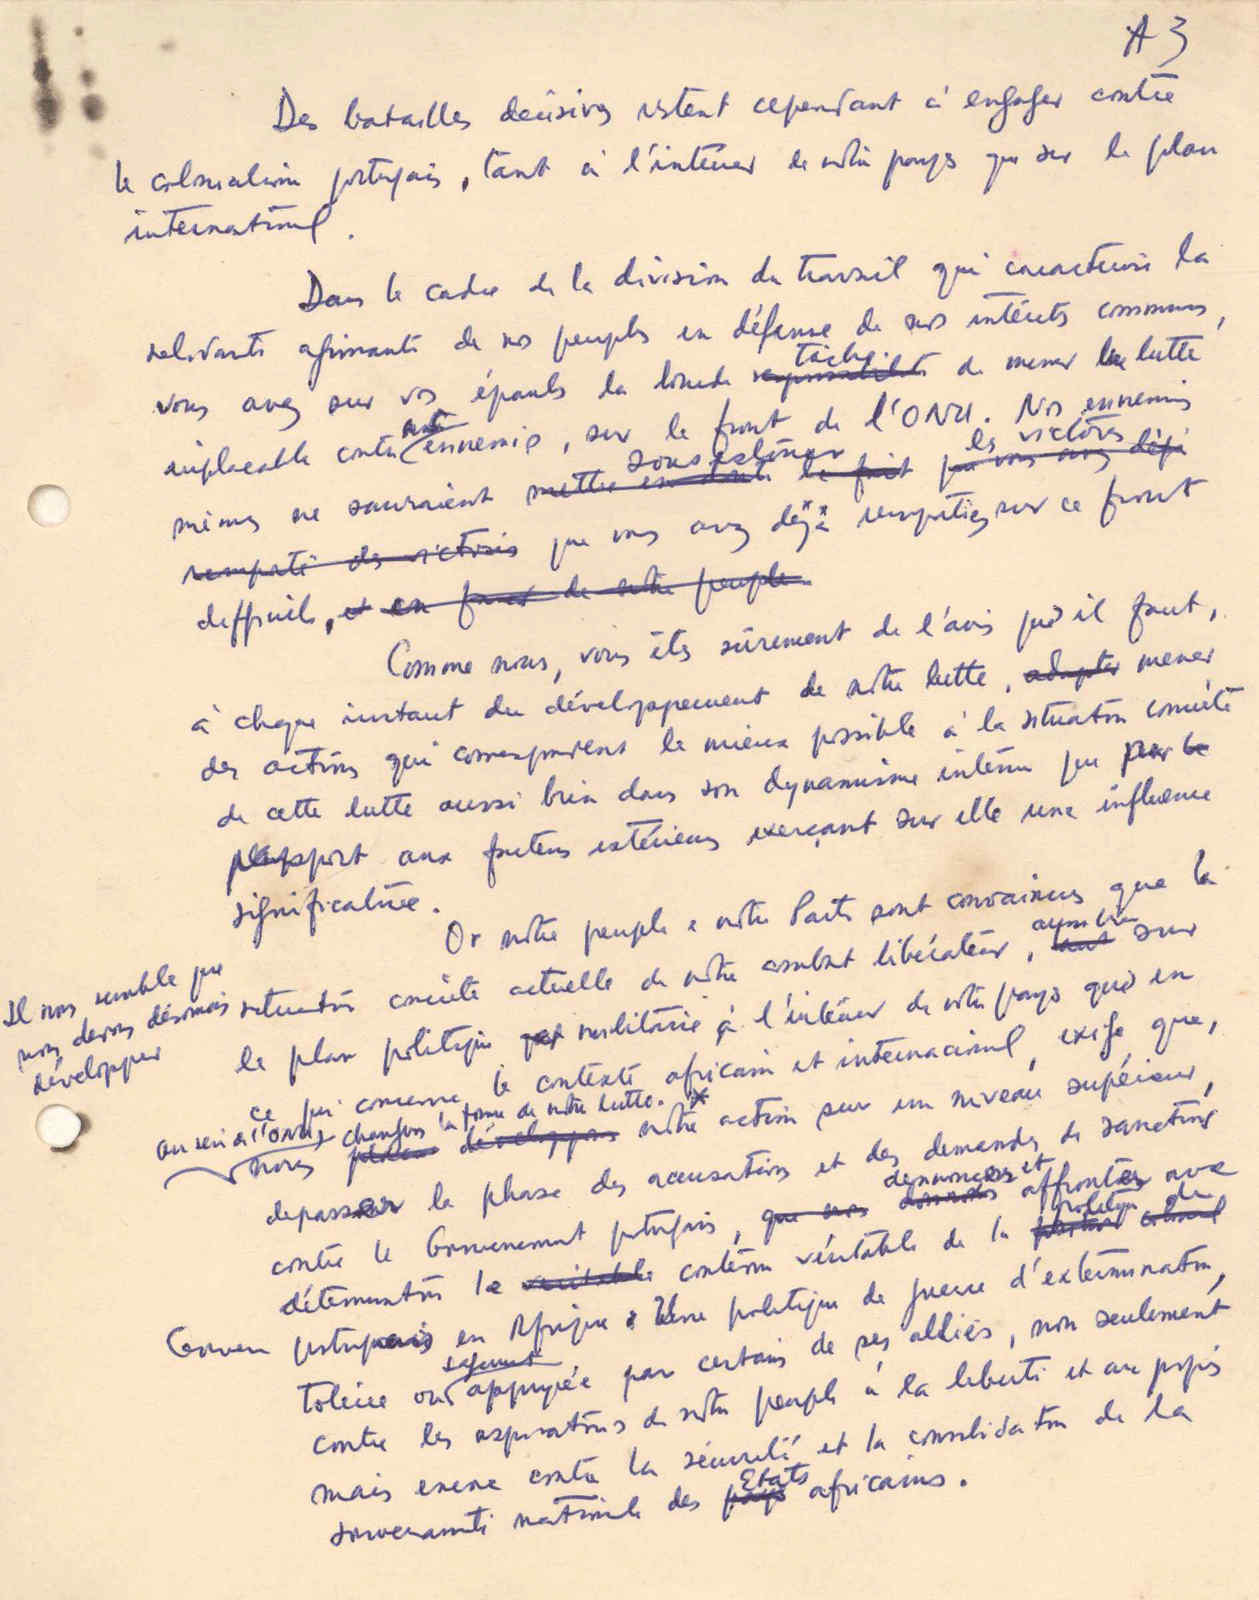 A 3
Des batailles décisives restent cependant à engager contre
le colonialisme portugais, tant à l'intérieur de notre pays que sur le plan
international.
Dans le cadre de la division du travail qui caractérise la
solidarité agissante de nos peuples en défense de nos intérêts communs,
tâche
vous avez sur vos épaules la lourde responsabilité de mener la lutte
implacable contre nos ennemis, sur le front de l'ONU. Nos ennemis
sousestimer les victoires
mêmes ne sauraient mettre en doute le fait que vous avez déjà
remporté des victoires que vous avez déjà remportées sur ce front
difficile, et en faveur de notre peuple.
Comme nous, vous êtes sûrement de l'avis qu'il faut,
à chaque instant du développement de notre lutte, adopter mener
des actions qui correspondent le mieux possible à la situation concrète
de cette lutte aussi bien dans son dynamisme interne que par le
rapport aux facteurs extérieurs exerçant sur elle une influence
significative.
Or notre peuple e notre Parti sont convaincus que la
aussi bien
situation concrète actuelle de notre combat libérateur, tant sur
le plan politique et militaire à l'intérieur de notre pays qu'en
ce qui concerne le contexte africain et internacional, exige que,
Il nous semble que
nous devons désormais
développer
au sein de l'ONU, changeons la forme de notre lutte.
nous développons notre action sur un niveau supérieur,
depasser la phase des accusations et des demandes de sanctions
dénoncer et
contre le Gouvernement portugais, que nous donnons affronter avec
politique du
détermination le véritable contenu véritable de la colonial
Gouver portugais en Afrique : Une politique de guerre d'extermination,
tolérée ou appuyée par certains de ses alliés, non seulement
contre les aspirations de notre peuple à la liberté et au progrès
mais encore contre la sécurité et la consolidation de la
Etats
souveraineté nationale des pays africains.